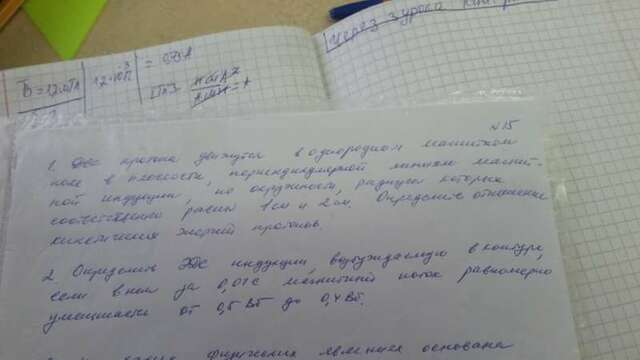 через 3 урока
B = 12 мТл
12·10⁻³ Тл
= 0,75 А
N15
1. Два протона движутся в однородном магнитном
поле в плоскости, перпендикулярной линиям магнит-
ной индукции, по окружности, радиусы которых
соответственно равны 1 см и 2 см. Определите отношение
кинетических энергий протонов.
2. Определить ЭДС индукции, возбуждаемую в контуре,
если в нем за 0,01 с магнитный поток равномерно
уменьшается от 0,5 Вб до 0,4 Вб.
физическая явления основана